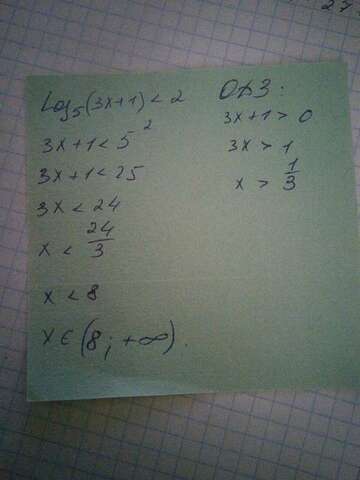 Log₅(3x+1) < 2
3x+1 < 5²
3x+1 < 25
3x < 24
x < 24/3
x < 8
x ∈ (8; +∞).
ОДЗ:
3x+1 > 0
3x > 1
x > 1/3
27